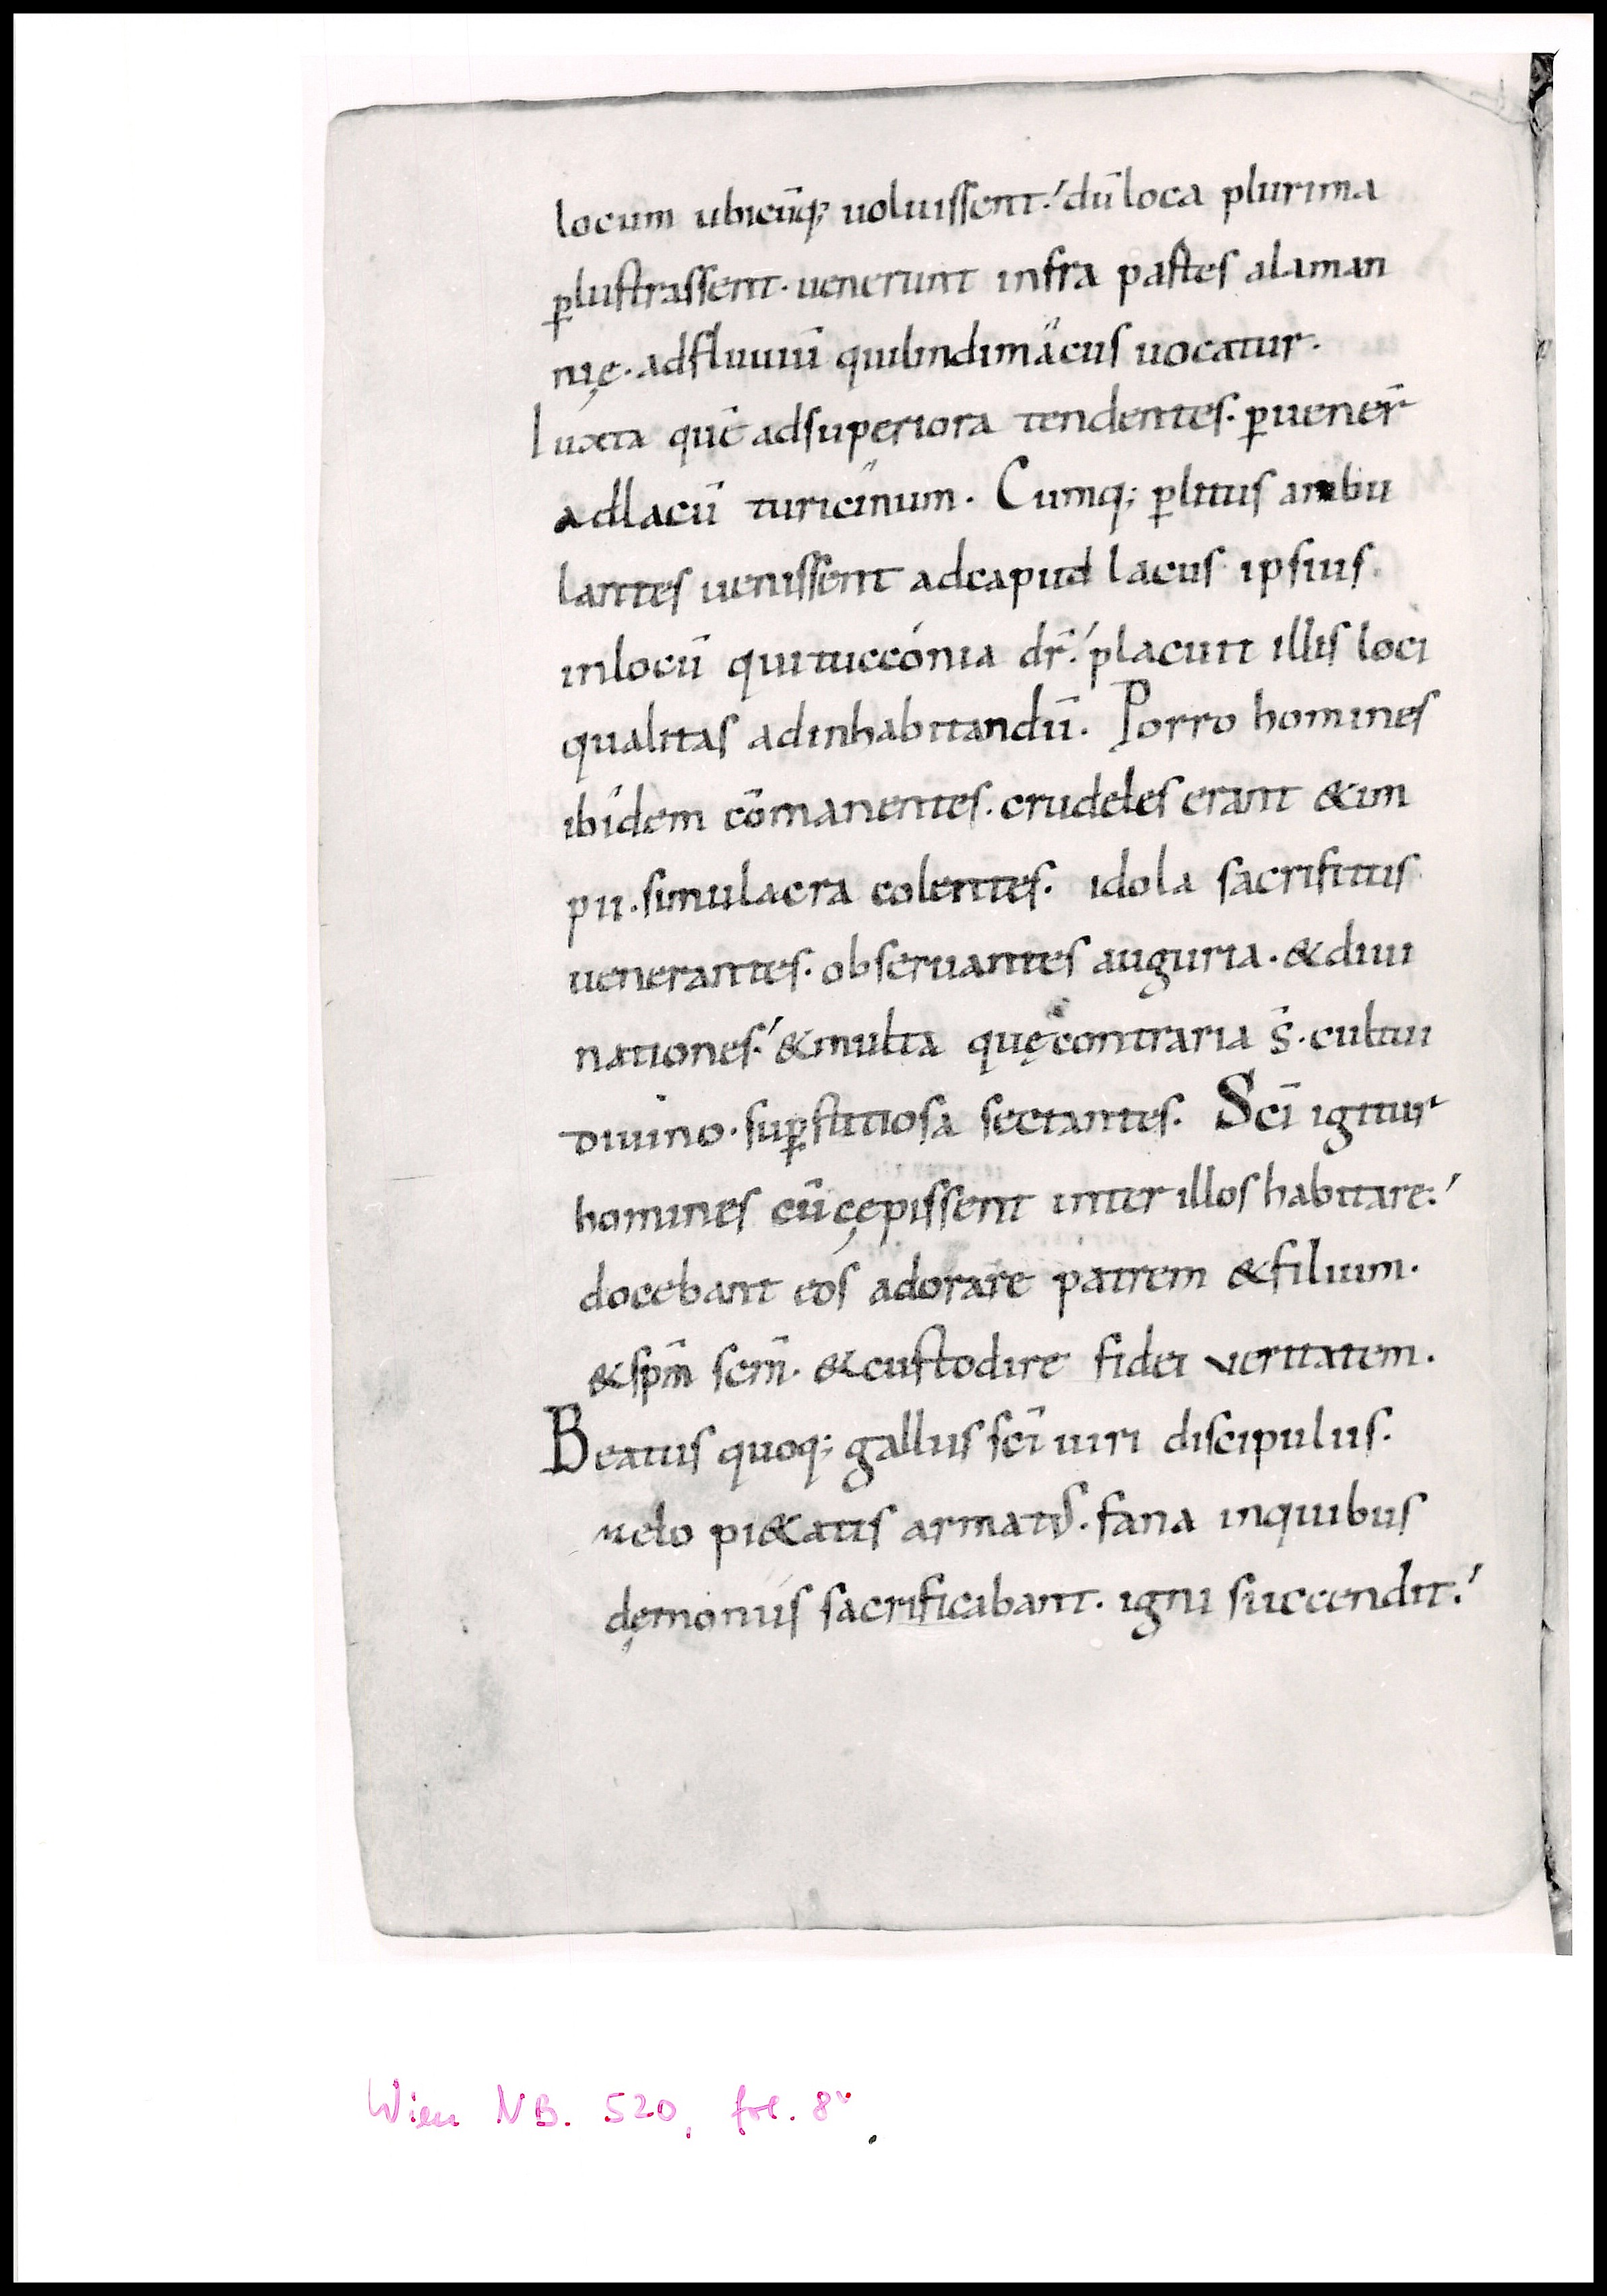 locum ubicūq; uoluissent.' dū loca plurima
ꝑlustrassent. uenerunt infra partes alaman
nię. adfluuiū quilindimácus uocatur.
Iuxta quē adsuperiora tendentes. ꝑuener̄
adlacū turicinum. Cumq; ꝑ litus ambu
lantes uenissent adcapud lacus ipsius.
inlocū quituccónia dr̄.' placuit illis loci
qualitas adinhabitandū. Porro homines
ibidem cōmanentes. crudeles erant & im
pii. simulacra colentes. idola sacrifitiis
uenerantes. obseruantes auguria. & diui
nationes.' & multa quę contraria s̄. cultui
diuino. suꝑstitiosa sectantes. Sc̄i igitur
homines cū cępissent inter illos habitare.'
docebant eos adorare patrem & filium.
& spm̄ scm̄. & custodire fidei veritatem.
Beatus quoq; gallus sc̄i uiri discipulus.
zelo pi&atis armatus. fana inquibus
dęmoniis sacrificabant. igni succendit.'
Wien NB. 520, fol. 8v